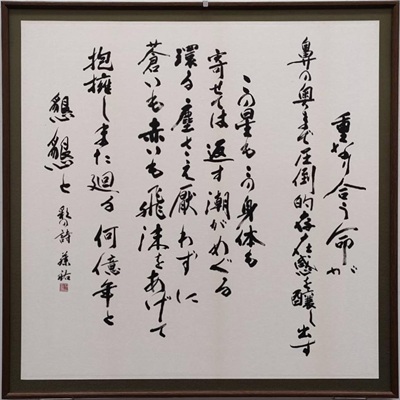 重なり合う命が
鼻の奥まで圧倒的存在感を醸し出す
この星もこの身体も
寄せては返す潮がめぐる
環る塵さえ厭わずに
蒼いも赤いも飛沫をあげて
抱擁しまた廻る何億年と
懇懇と